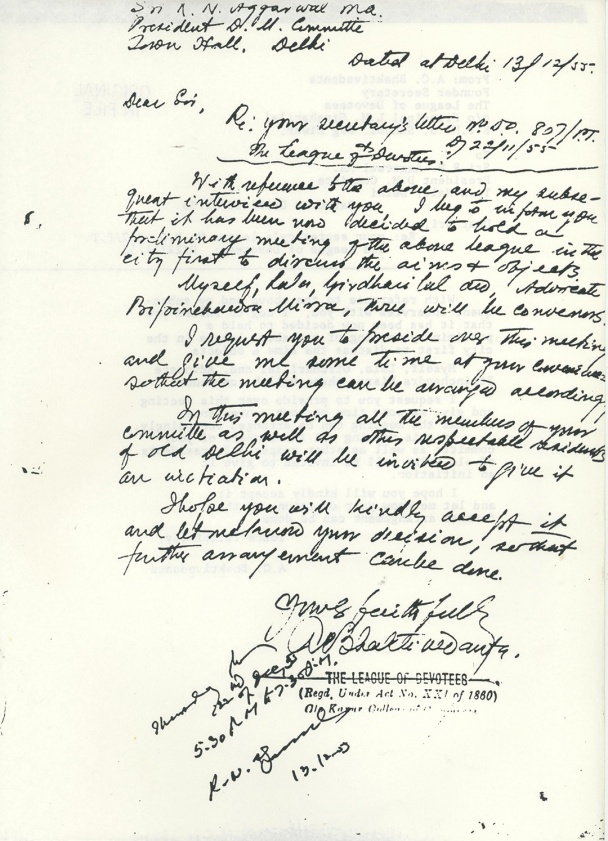 Sri R. N. Aggarwal M.A.
President D. M. Committe
Town Hall, Delhi
Dated at Delhi 13/12/55.
Dear Sir,
Re: your secretary's letter No D.O. 807/P.T.
of 22/11/55
The League of Devotees.
With reference to the above and my subse-
quent interview with you, I beg to inform you
that it has been now decided to hold a
preliminary meeting of the above league in the
city first to discuss the aims & objects
Myself, Lala, Girdharilal and Advocate
Bipinchandra Misra, three will be convenors.
I request you to preside over this meeting
and give me some time at your convenience
so that the meeting can be arranged according
In this meeting all the members of your
committe as well as other respectable residents
of old Delhi will be invited to give it
an
I hope you will kindly accept it
and let me know your decision, so that
further arrangement can be done.
Yours faithfully
A C Bhaktivedanta.
THE LEAGUE OF DEVOTEES
(Regd. Under Act No. XXI of 1860)
22nd of
5.30 P.M to 7.30 P.M.
R. N.